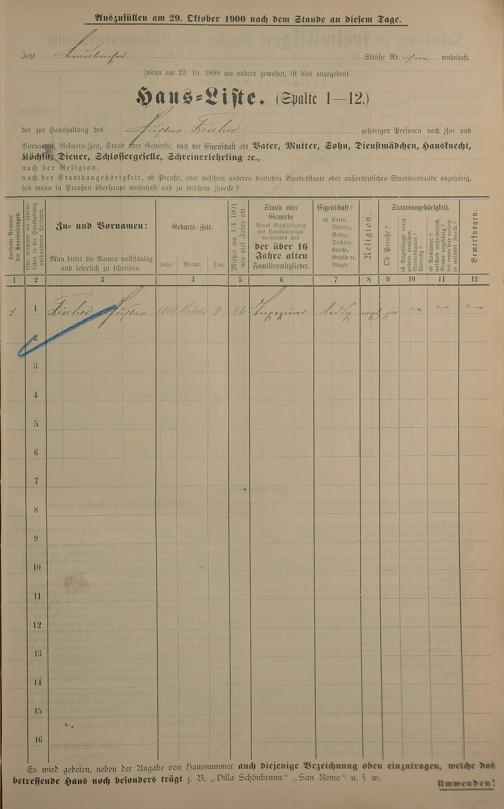 Auszufüllen am 29. Oktober 1900 nach dem Stande an diesem Tage.
Jetzt Straße Nr. wohnhaft.
(wenn am 27. 10. 1899 wo anders gewohnt, ist dies anzugeben)
Haus=Liste. (Spalte 1—12.)
der zur Haushaltung des Gustav Fischer gehörigen Personen nach Zu= und
Vornamen, Geburts=Zeit, Stand oder Gewerbe, nach der Eigenschaft als Vater, Mutter, Sohn, Dienstmädchen, Hausknecht,
Köchin, Diener, Schlossergeselle, Schreinerlehrling 2c.,
nach der Religion,
nach der Staatsangehörigkeit, ob Preuße, oder welchem anderen deutschen Bundesstaate oder außerdeutschen Staatsverbande angehörig,
seit wann in Preußen überhaupt wohnhaft und zu welchem Zwecke?
Zu= und Vornamen:
Man bittet die Namen vollständig
und leserlich zu schreiben.
Geburts=Zeit.
Jahr. Monat. Tag.
Stand oder
Gewerbe
der über 16
Jahre alten
Familienmitglieder.
Eigenschaft:
ob Vater,
Mutter,
Sohn,
Tochter,
Knecht,
Geselle u.
Magd.
Religion.
Staatsangehörigkeit.
Ob Preuße?
Bemerkungen.
1 2 3 4 5 6 7 8 9 10 11 12
1 1 Fischer Gustav Oktober ledig ja
2
3
4
5
6
7
8
9
10
11
12
13
14
15
16
Es wird gebeten, neben der Angabe von Hausnummer auch diejenige Bezeichnung oben einzutragen, welche das
betreffende Haus noch besonders trägt z. B. „Villa Schönbrunn“ „San Remo“ u. s. w.
Umwenden!